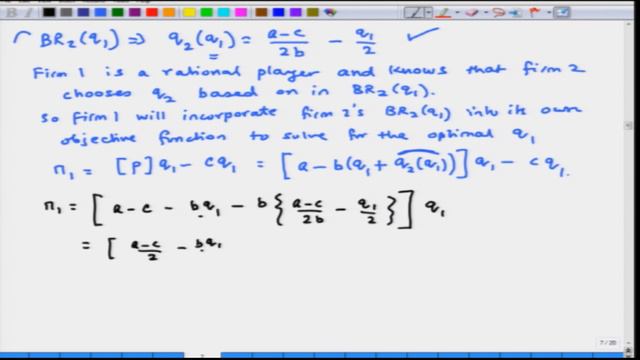 BR₂(q₁) ⇒ q₂(q₁) = a-c/2b - q₁/2 ✓
Firm 1 is a rational player and knows that firm 2
chooses q₂ based on in BR₂(q₁).
So Firm 1 will incorporate firm 2's BR₂(q₁) into its own
objective function to solve for the optimal q₁
π₁ = [P]q₁ - cq₁ = [a - b(q₁ + q₂(q₁))]q₁ - cq₁.
π₁ = [a-c - bq₁ - b{a-c/2b - q₁/2}] q₁
= [a-c/2 - bq₁
7/20